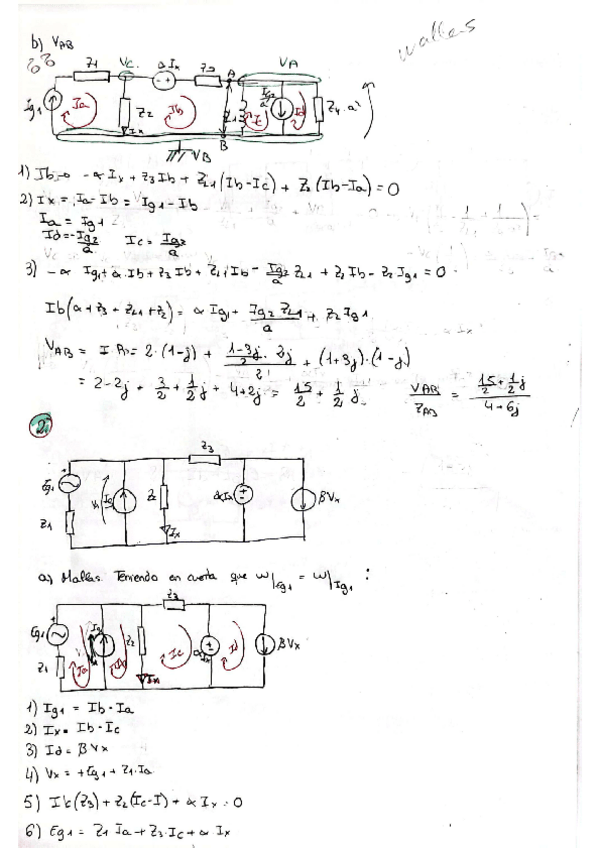 mallas
b) VAB
Z1 Vc αIx Z3 A VA
Ig1 Ia Z2 Ib Ic Ig2/a Id Z4·a²
Ix B
VB
1) Ib → -αIx + Z3Ib + ZL1(Ib-Ic) + Z2(Ib-Ia) = 0
2) Ix = Ia - Ib = Ig1 - Ib
Ia = Ig1
Id = -Ig2/a Ic = Ig2/a
3) -α Ig1 + α·Ib + Z3 Ib + ZL1 Ib - Ig2/a ZL1 + Z2 Ib - Z2 Ig1 = 0
Ib(α + Z3 + ZL1 + Z2) = α Ig1 + Ig2 ZL1/a + Z2 Ig1
VAB = I·R = 2·(1-j) + 1-3j/2 · 2j + (1+3j)·(1-j)
= 2-2j + 3/2 + 1/2 j + 4+2j = 15/2 + 1/2 j VAB/ZAB = 15/2 + 1/2 j / 4+6j
2º
Z3
Eg1 Vx Ig Z2 αIx βVx
Z1 Ix
a) Mallas. Teniendo en cuenta que W/Eg1 = W/Ig1 :
Z3
Eg1 Ig Z2 αIx βVx
Z1 Ia Ib Ic Id
Ix
1) Ig1 = Ib - Ia
2) Ix = Ib - Ic
3) Id = β Vx
4) Vx = +Eg1 + Z1·Ia
5) Ic(Z3) + Z2(Ic-I) + α Ix = 0
6) Eg1 = Z1 Ia + Z3·Ic + α Ix